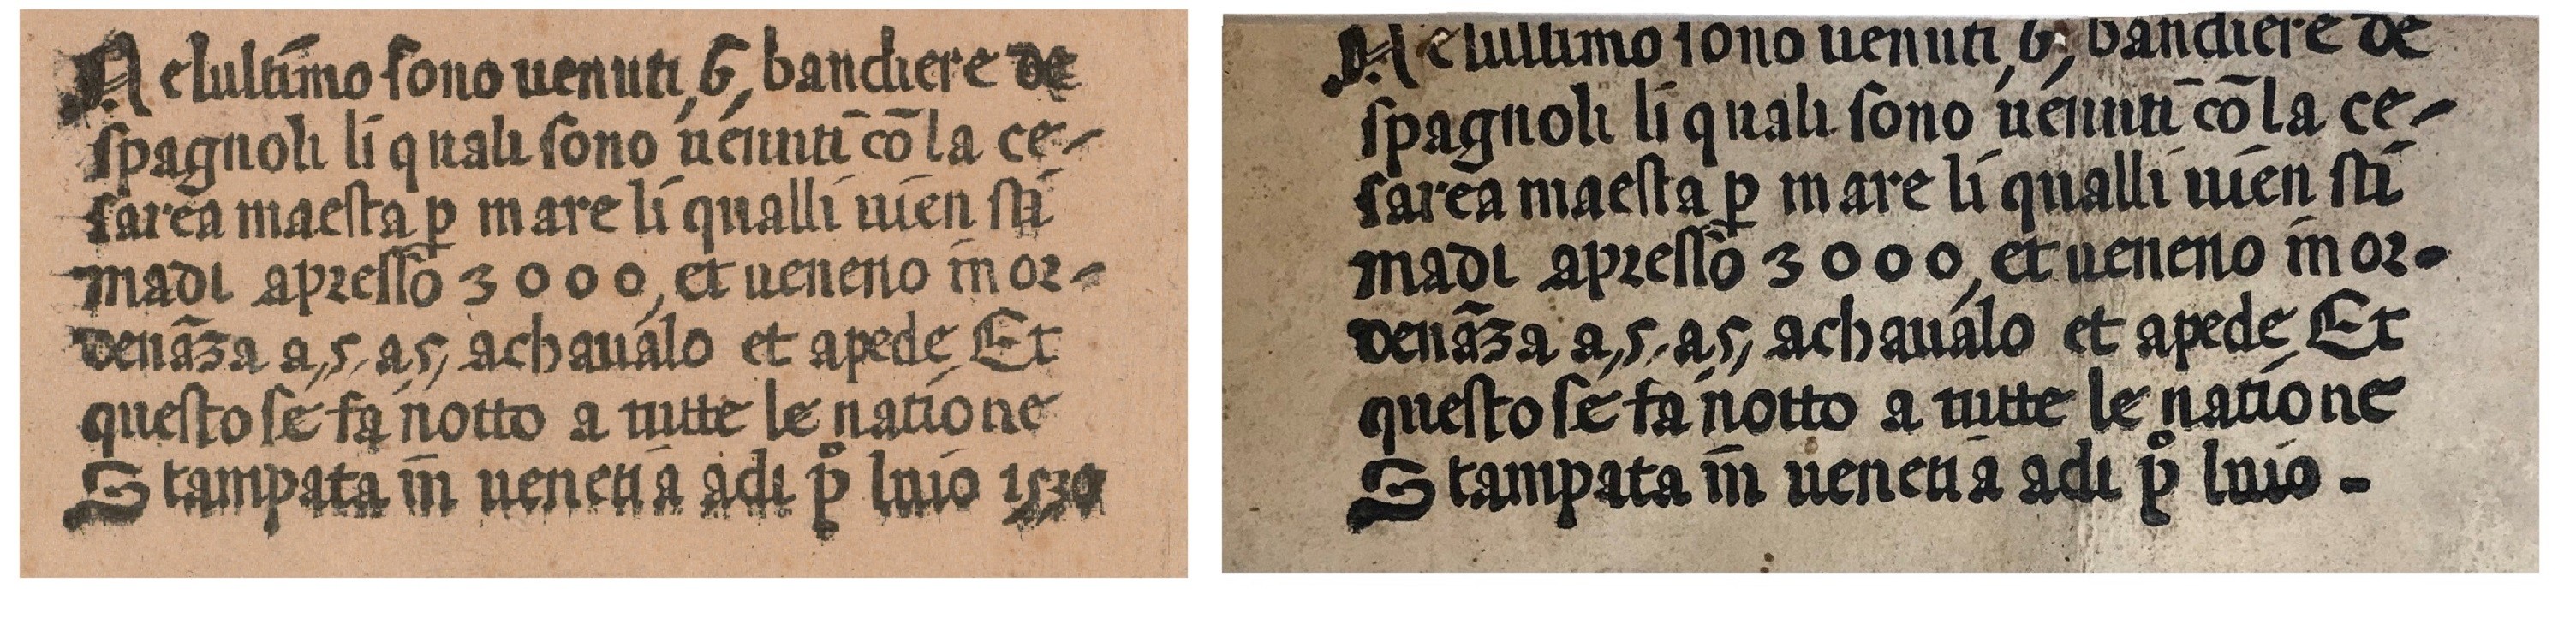 Nelultimo sono uenuti, 6, bandiere de
spagnoli li quali sono uenuti cõ la ce-
sarea maesta ꝑ mare li qualli uien sti
madi apresso 3000, et ueneno in or-
denãza a, 5, a 5, achaualo et apede, Et
questo se fa notto a tutte le natione
Stampata in̄ uenetia adi pº luio 1530
Nelultimo sono uenuti, 6, bandiere de
spagnoli li quali sono uenuti cõ la ce-
sarea maesta ꝑ mare li qualli uien sti
madi apresso 3000, et ueneno in or-
denãza a, 5, a 5, achaualo et apede, Et
questo se fa notto a tutte le natione
Stampata in̄ uenetia adi pº luio -